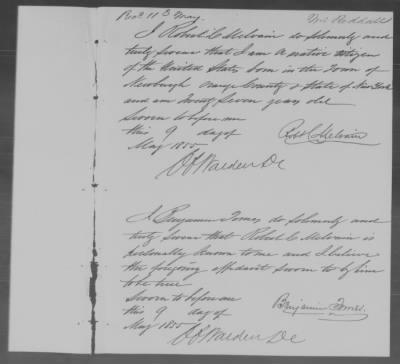 Rec'd 11th May. Mr Reddall
I Robert C Melvain do solemnly and
truly swear that I am a native citizen
of the United States born in the Town of
Newburgh Orange County & State of New York
and am twenty seven years old
Sworn to before me
this 9 day of
May 1855
Robt C Melvain
Warden
I Benjamin Tomes do solemnly and
truly swear that Robert C Melvain is
personally known to me and I believe
the foregoing affidavit sworn to by him
to be true
Sworn to before me
this 9 day of
May 1855
Benjamin Tomes.
Warden